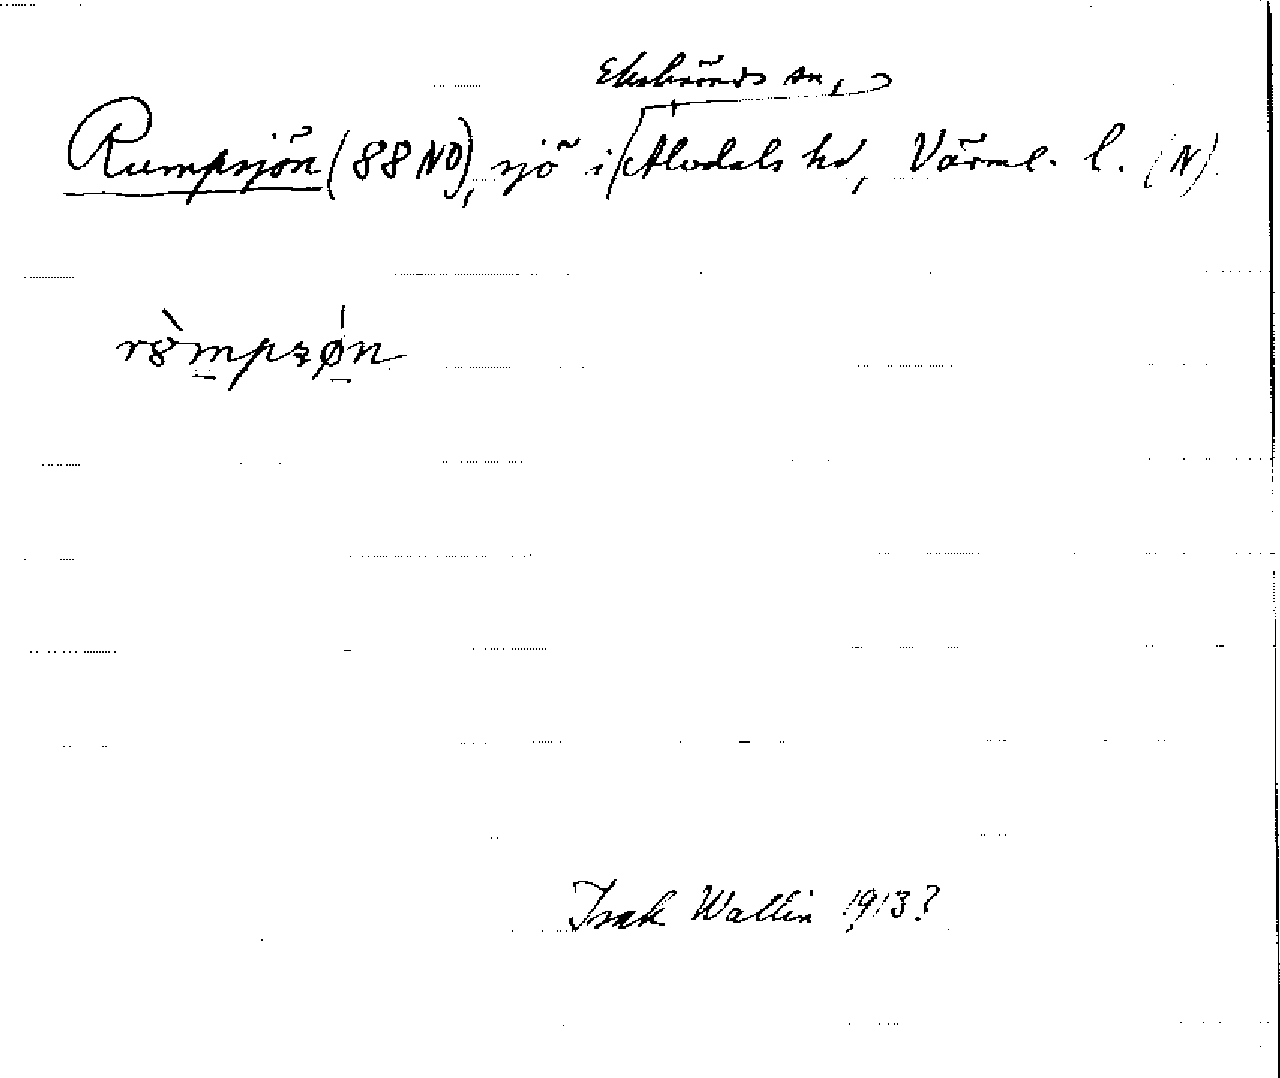 Ekshärads sn,
Rumpsjön (88 NO), sjö i Älvdals hd, Värml. l. (N).
Isak Wallin 1913?